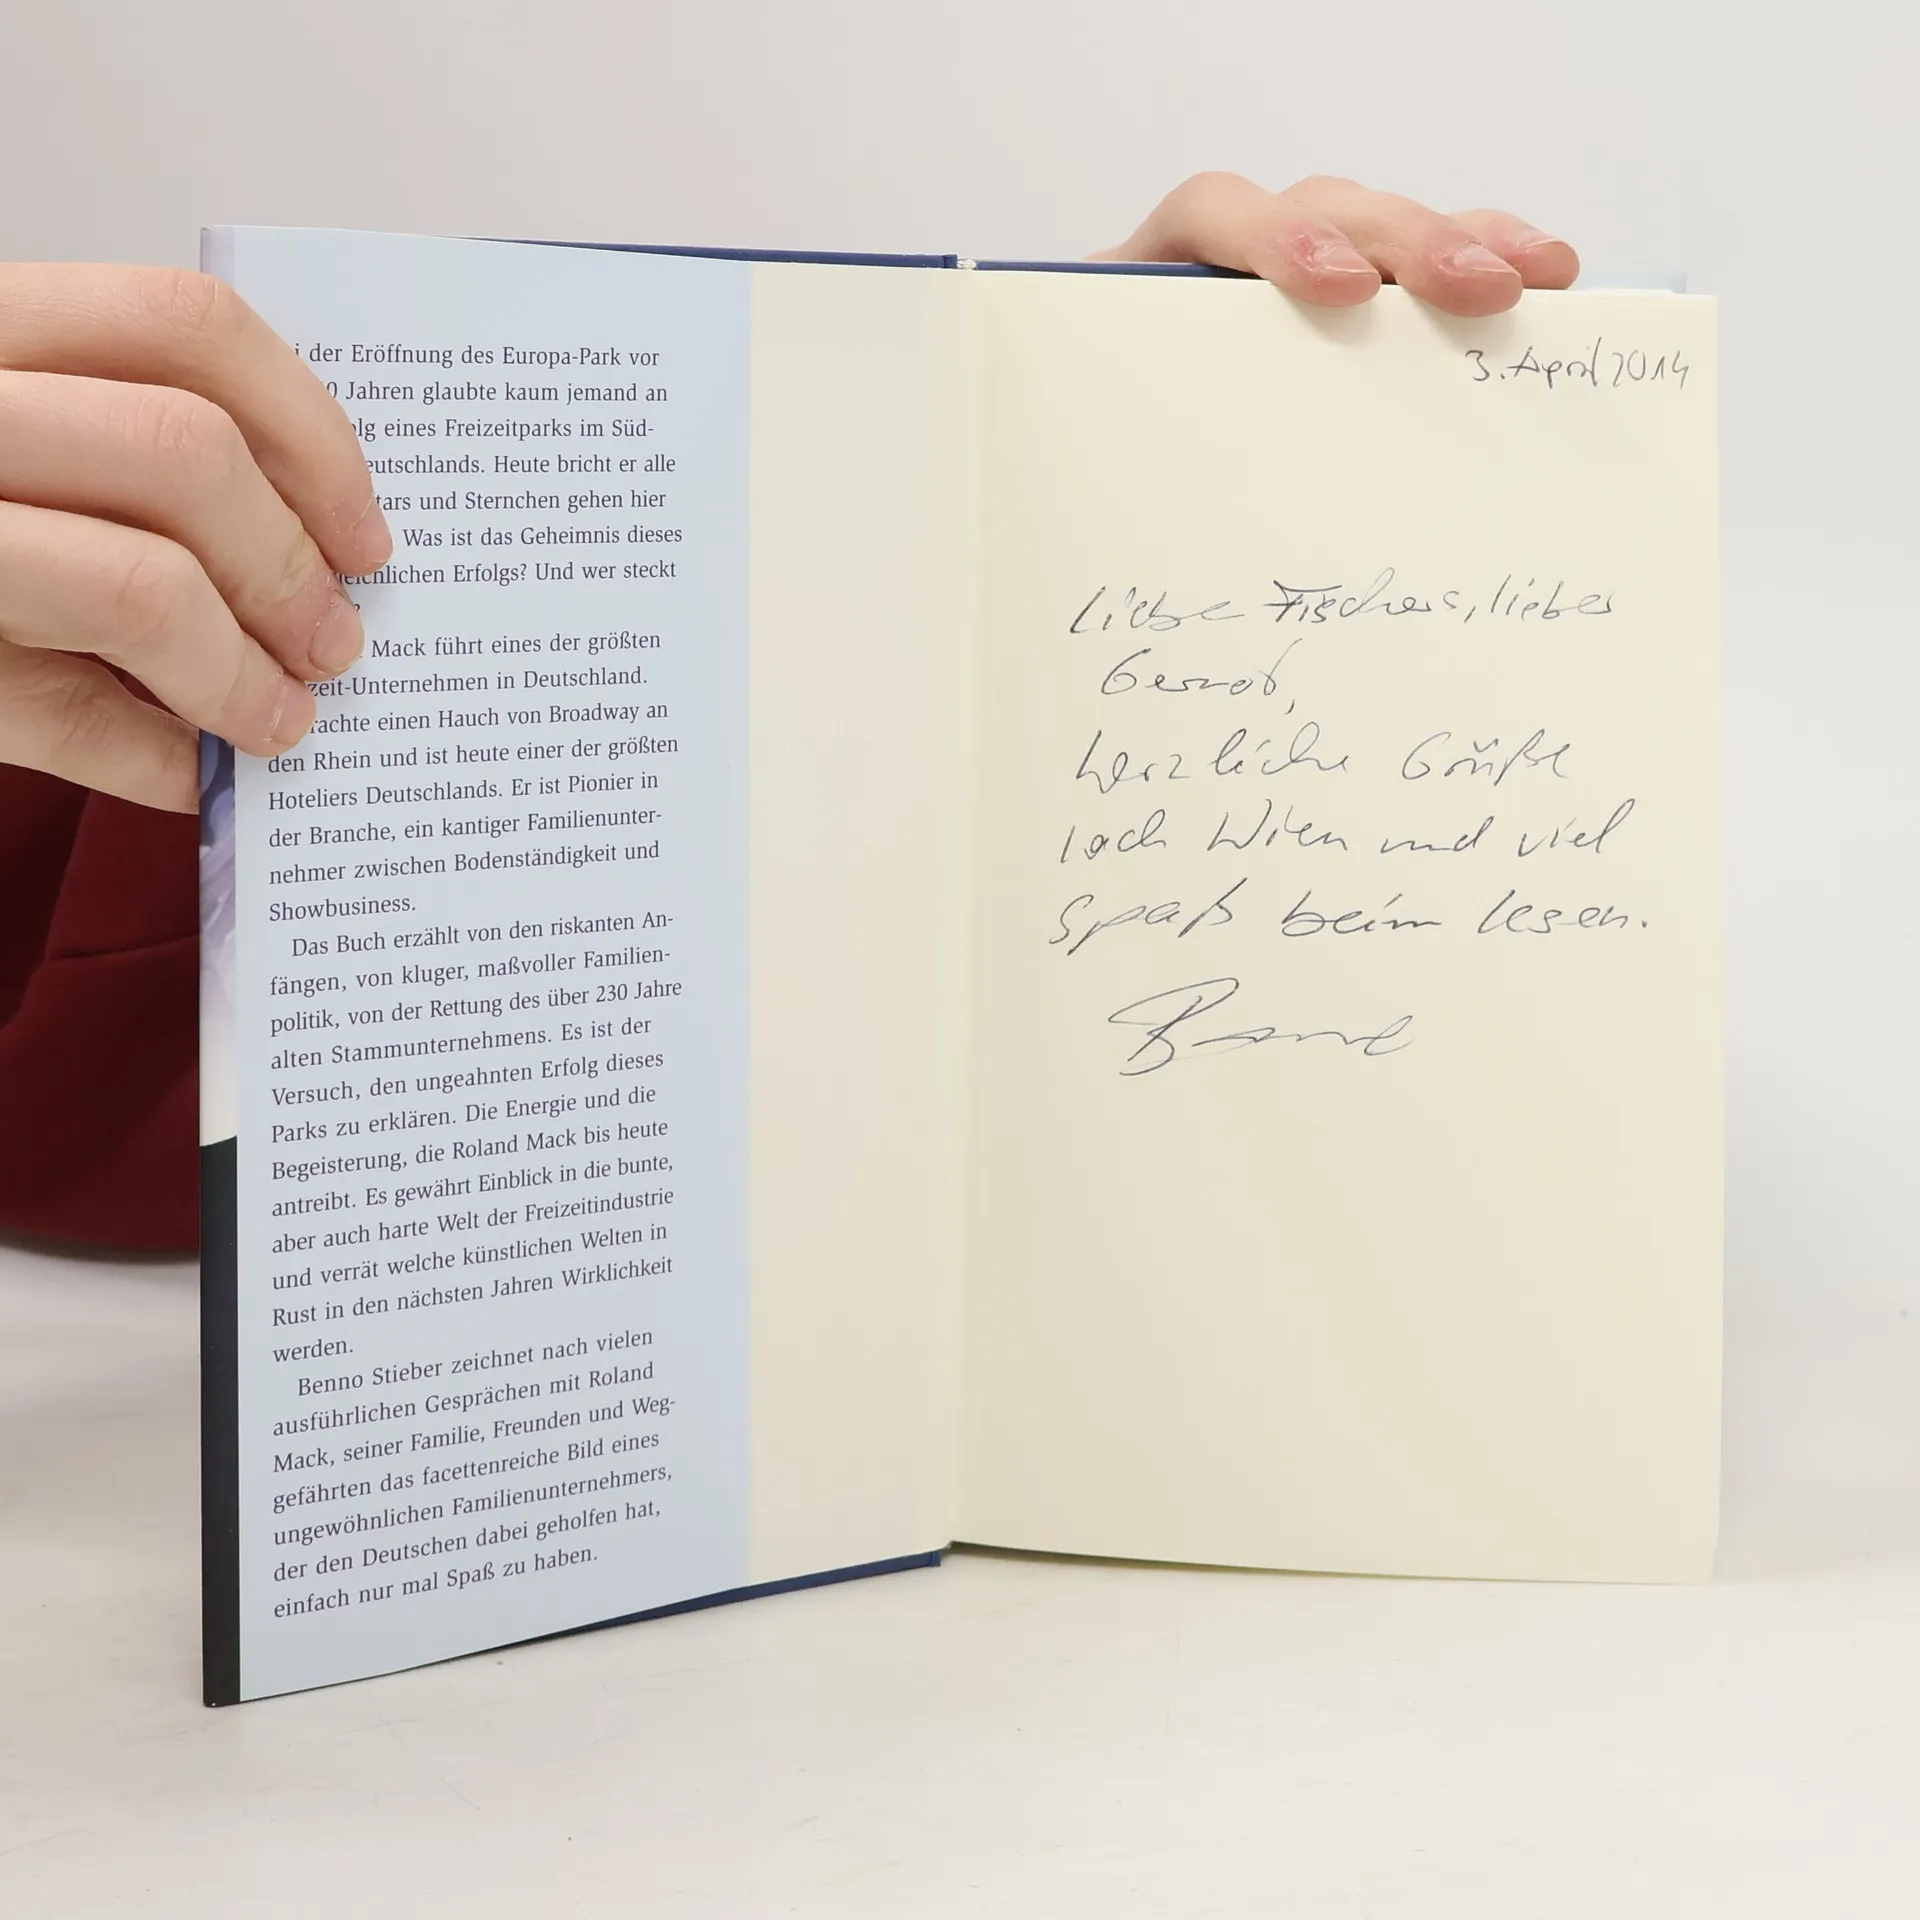 der Eröffnung des Europa-Park vor
Jahren glaubte kaum jemand an
eines Freizeitparks im Süd-
eutschlands. Heute bricht er alle
tars und Sternchen gehen hier
Was ist das Geheimnis dieses
eichlichen Erfolgs? Und wer steckt
Mack führt eines der größten
zeit-Unternehmen in Deutschland.
rachte einen Hauch von Broadway an
den Rhein und ist heute einer der größten
Hoteliers Deutschlands. Er ist Pionier in
der Branche, ein kantiger Familienunter-
nehmer zwischen Bodenständigkeit und
Showbusiness.
Das Buch erzählt von den riskanten An-
fängen, von kluger, maßvoller Familien-
politik, von der Rettung des über 230 Jahre
alten Stammunternehmens. Es ist der
Versuch, den ungeahnten Erfolg dieses
Parks zu erklären. Die Energie und die
Begeisterung, die Roland Mack bis heute
antreibt. Es gewährt Einblick in die bunte,
aber auch harte Welt der Freizeitindustrie
und verrät welche künstlichen Welten in
Rust in den nächsten Jahren Wirklichkeit
werden.
Benno Stieber zeichnet nach vielen
ausführlichen Gesprächen mit Roland
Mack, seiner Familie, Freunden und Weg-
gefährten das facettenreiche Bild eines
ungewöhnlichen Familienunternehmers,
der den Deutschen dabei geholfen hat,
einfach nur mal Spaß zu haben.
3. April 2014
Liebe Fischers, lieber
Gernot,
herzliche Grüße
nach Wien und viel
Spaß beim Lesen.
Benno